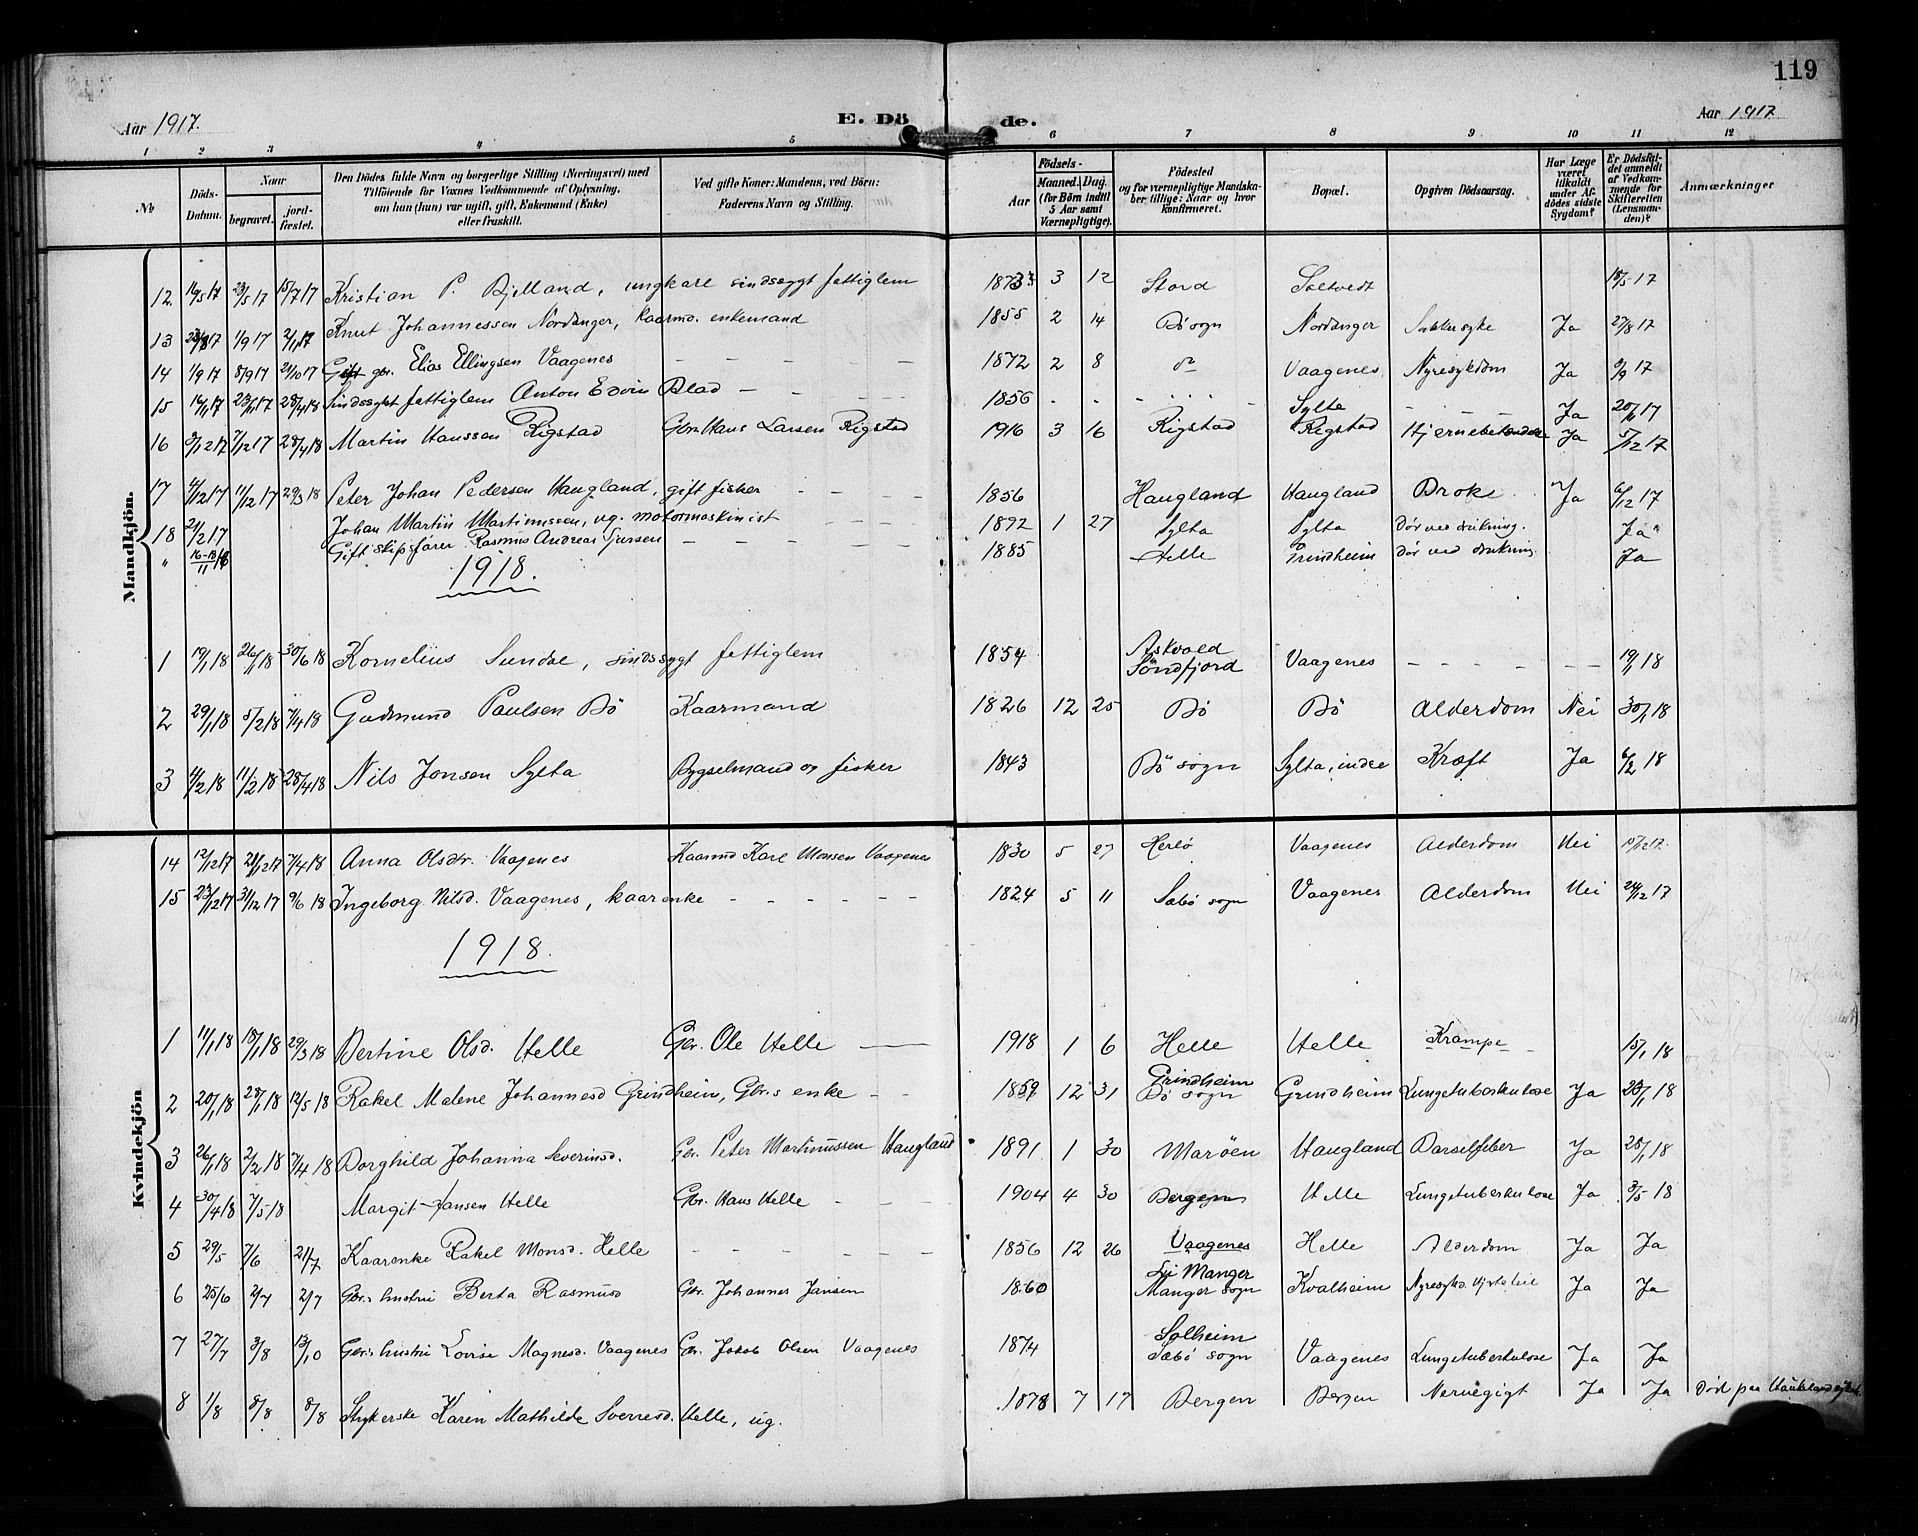 119
Aar 1917. E. Dö de. Aar 1917
1 2 3 4 5 6 7 8 9 10 11 12
№ Döds-Datum. Naar begravet. jord-fæstet. Den Dödes fulde Navn og borgerlige Stilling (Næringsvei) med Tilföiende for Voxnes Vedkommende af Oplysning, om han (hun) var ugift, gift, Enkemand (Enke) eller fraskilt. Ved gifte Koner: Mandens, ved Börn: Faderens Navn og Stilling. Födsels- Aar Maaned. Dag (for Börn indtil 5 Aar samt Værnepligtige). Födested og for værnepligtige Mandskaber tillige: Naar og hvor konfirmeret. Bopæl. Opgiven Dödsaarsag. Har Læge været tilkaldt under Afdödes sidste Sygdom? Er Dödsfaldet anmeldt af Vedkommende for Skifteretten (Lensmanden)? Anmærkninger
Mandkjön.
12 16/5 17 23/5 17 15/7 17 Kristian P. Bjelland, ungkarl sindssygt fattiglem 1873 3 12 Stord Soltvedt 18/5 17
13 23/8 17 1/9 17 2/11 17 Knut Johannessen Nordanger, kaarmd. enkemand 1855 2 14 Bö sogn Nordanger Sukkersyke Ja 27/8 17
14 1/9 17 8/9 17 21/10 17 Gift gbr. Elias Ellingsen Vaagenes — — — 1872 2 8 do Vaagenes Nyresykdom Ja 3/9 17
15 14/11 17 23/11 17 28/4 18 Sindssykt fattiglem Anton Edvin Blad — 1856 Sylte Ja 20/11 17
16 3/12 17 7/12 17 28/4 18 Martin Hanssen Rigstad Gbr. Hans Larsen Rigstad 1916 3 16 Rigstad Rigstad Hjernebetændelse Ja 5/12 17
17 4/12 17 11/12 17 29/3 18 Peter Johan Pedersen Haugland, gift fisker 1856 Haugland Haugland Brok Ja 6/12 17
18 21/2 17 Johan Martin Martinussen, ug. motormaskinist 1892 1 27 Sylta Sylta Dör ved drukning. Ja
" 16-18/11 18 Gift skipsförer Rasmus Andreas Iversen 1885 Helle Grindheim Dör ved drukning Ja
1918.
1 19/1 18 26/1 18 30/6 18 Kornelius Sundal, sindssygt fattiglem 1854 Askvold Söndfjord Vaagenes 19/1 18
2 29/1 18 5/2 18 7/4 18 Gudmund Paulsen Bö Kaarmand 1826 12 25 Bö Bö Alderdom Nei 30/1 18
3 4/2 18 11/2 18 28/4 18 Nils Jonsen Sylta Bygselmand og fisker 1843 Bö sogn Sylta, indre Kræft Ja 6/2 18
Kvindekjön
14 12/12 17 21/12 17 7/4 18 Anna Olsdr. Vaagenes Kaarmd Karl Monsen Vaagenes 1830 5 27 Herlö Vaagenes Alderdom Nei 15/12 17
15 23/12 17 31/12 17 9/6 18 Ingeborg Nilsd. Vaagenes, kaarenke 1824 5 11 Sæbö sogn Vaagenes Alderdom Nei 24/12 17
1918.
1 11/1 18 18/1 18 29/3 18 Bertine Olsd. Helle Gbr. Ole Helle — 1918 1 6 Helle Helle Krampe 15/1 18
2 20/1 18 28/1 18 12/5 18 Rakel Malene Johannesd Grindheim, Gbr.s enke 1859 12 31 Grindheim Bö sogn Grindheim Lungetuberkulose Ja 23/1 18
3 26/1 18 2/2 18 7/4 18 Borghild Johanna Severinsd. Gbr. Peter Martinussen Haugland 1891 1 30 Maröen Haugland Barselfeber Ja 28/1 18
4 30/4 18 7/5 18 Margit Hansen Helle Gbr. Hans Helle 1904 4 30 Bergen Helle Lungetuberkulose Ja 3/5 18
5 29/5 7/6 21/7 Kaarenke Rakel Monsd. Helle 1856 12 26 Vaagenes Helle Alderdom Ja Ja
6 25/6 2/7 2/7 Gbr.s hustru Berta Rasmusd Gbr. Johannes Jansen 1860 Manger Manger sogn Kvalheim Ja Ja
7 27/7 3/8 13/10 Gbr.s hustru Lovise Magnesd. Vaagenes Gbr. Jakob Olsen Vaagenes 1874 Solheim Sæbö sogn Vaagenes Lungetuberkulose Ja Ja
8 1/8 8/8 8/8 Strykerske Karen Mathilde Sverresd. Helle, ug. 1878 7 17 Bergen Bergen Nervegigt Ja Ja Död paa Haukeland